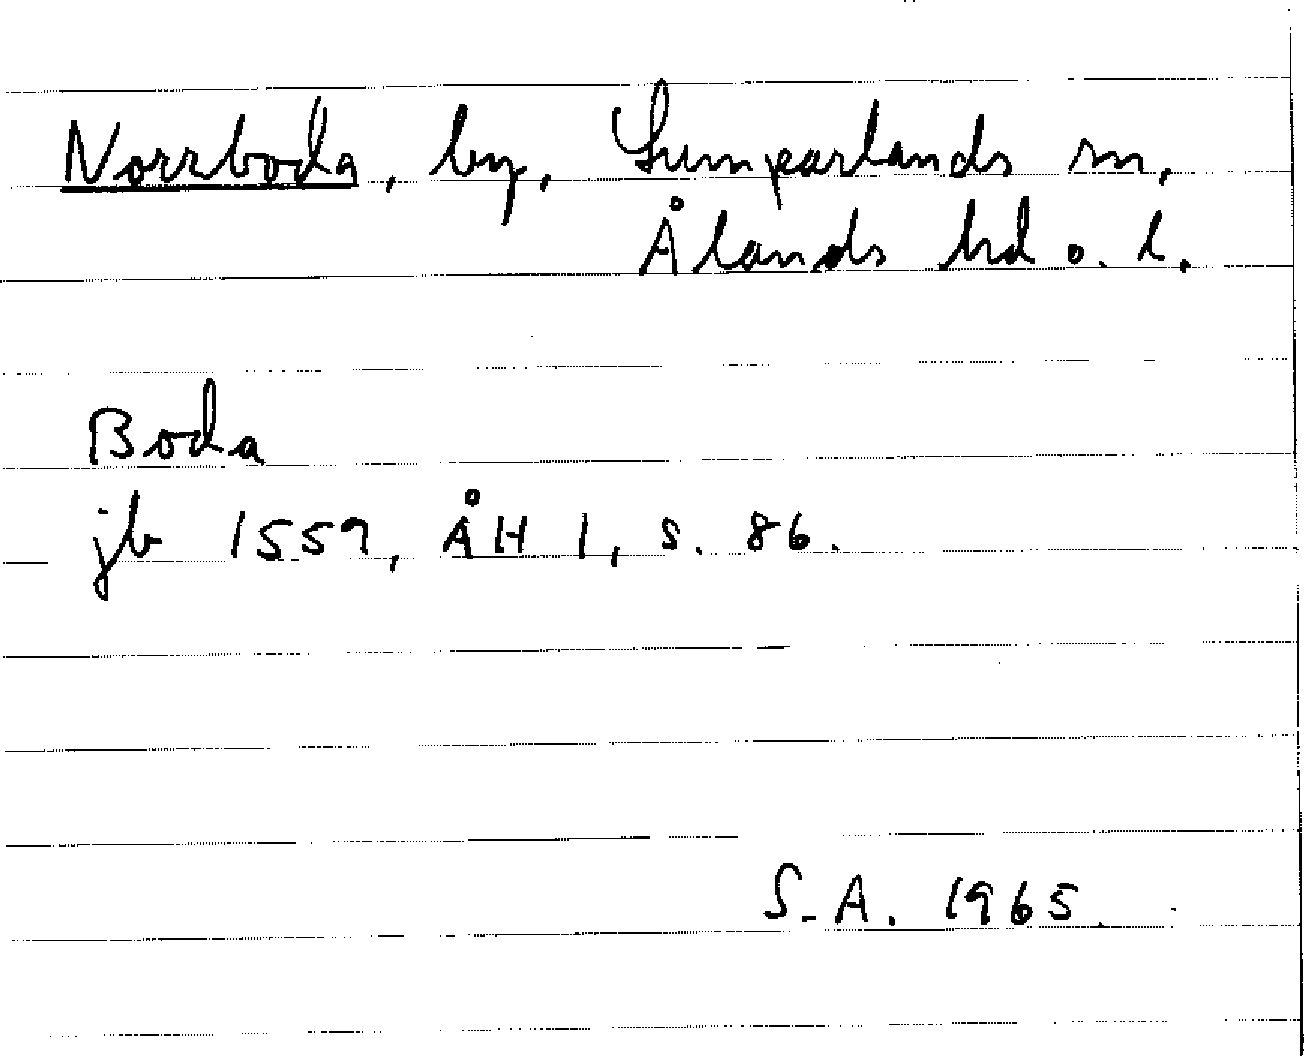 Norrboda, by, Lumparlands sn,
Ålands hd o. l.
Boda
jb 1559, ÅH 1, s. 86.
S-A. 1965.